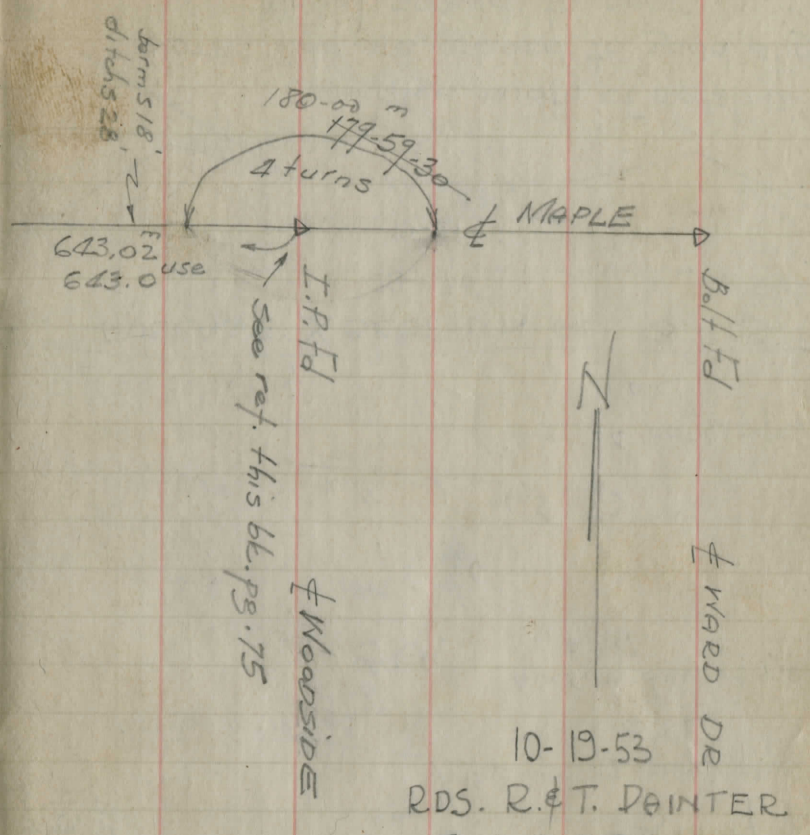 berms 18'
ditchs 28'
180-00 m
179-59-30
4 turns
℄ MAPLE
643.02
643.0 use
I.P. Fd
See ref. this bk. pg. 75
Bolt Fd
℄ WOODSIDE
℄ WARD DR
10-19-53
RDS. R. & T. PAINTER